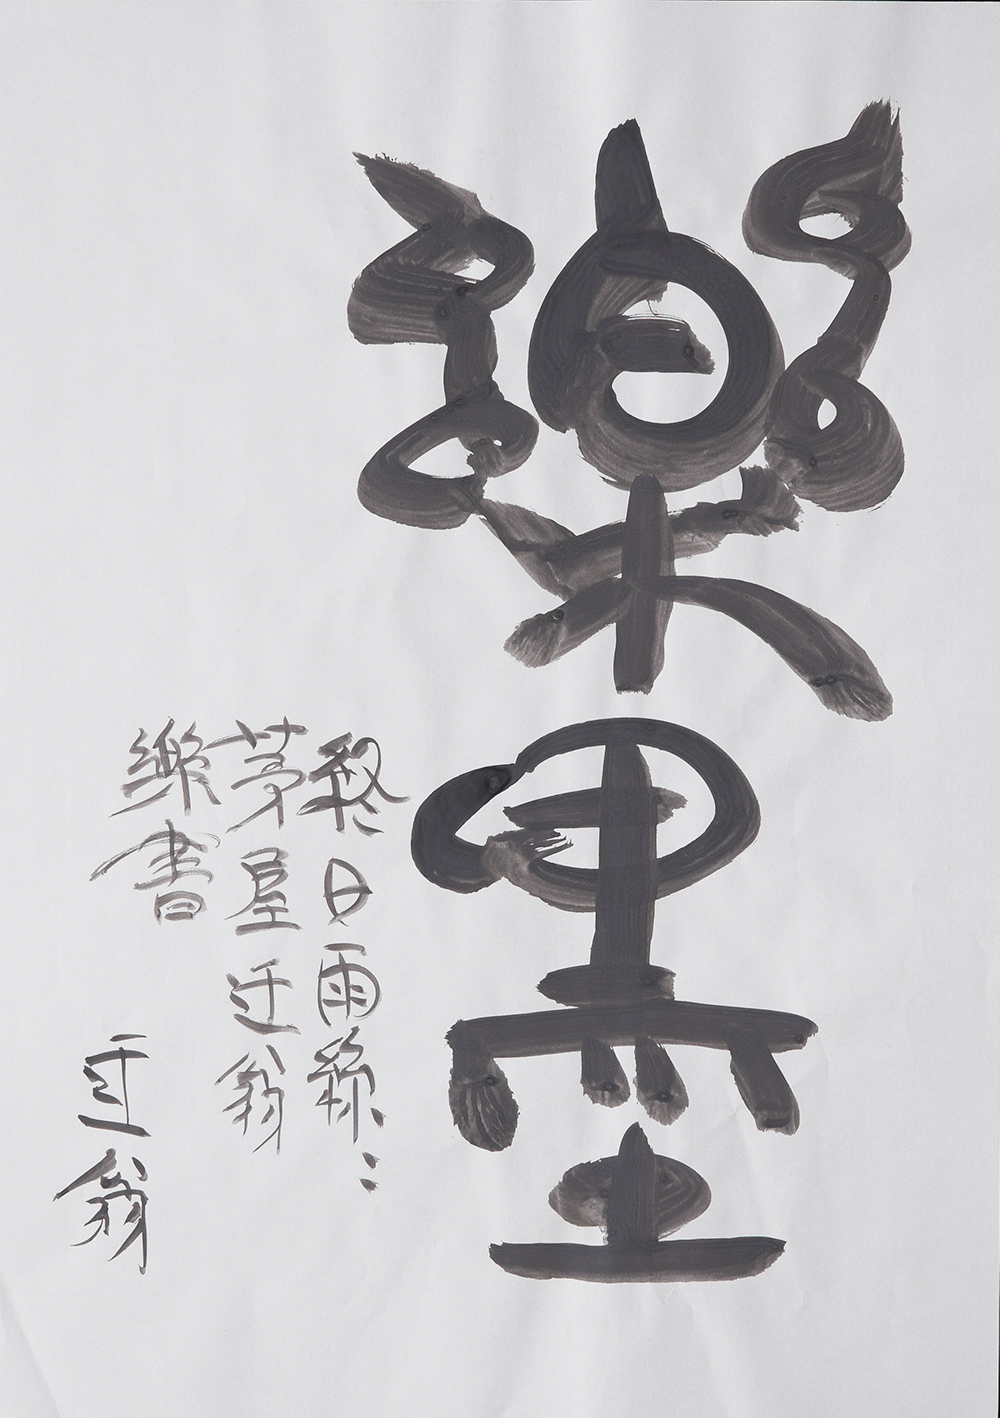 樂墨
終日雨絲〻
茅屋迂翁
樂書
迂翁